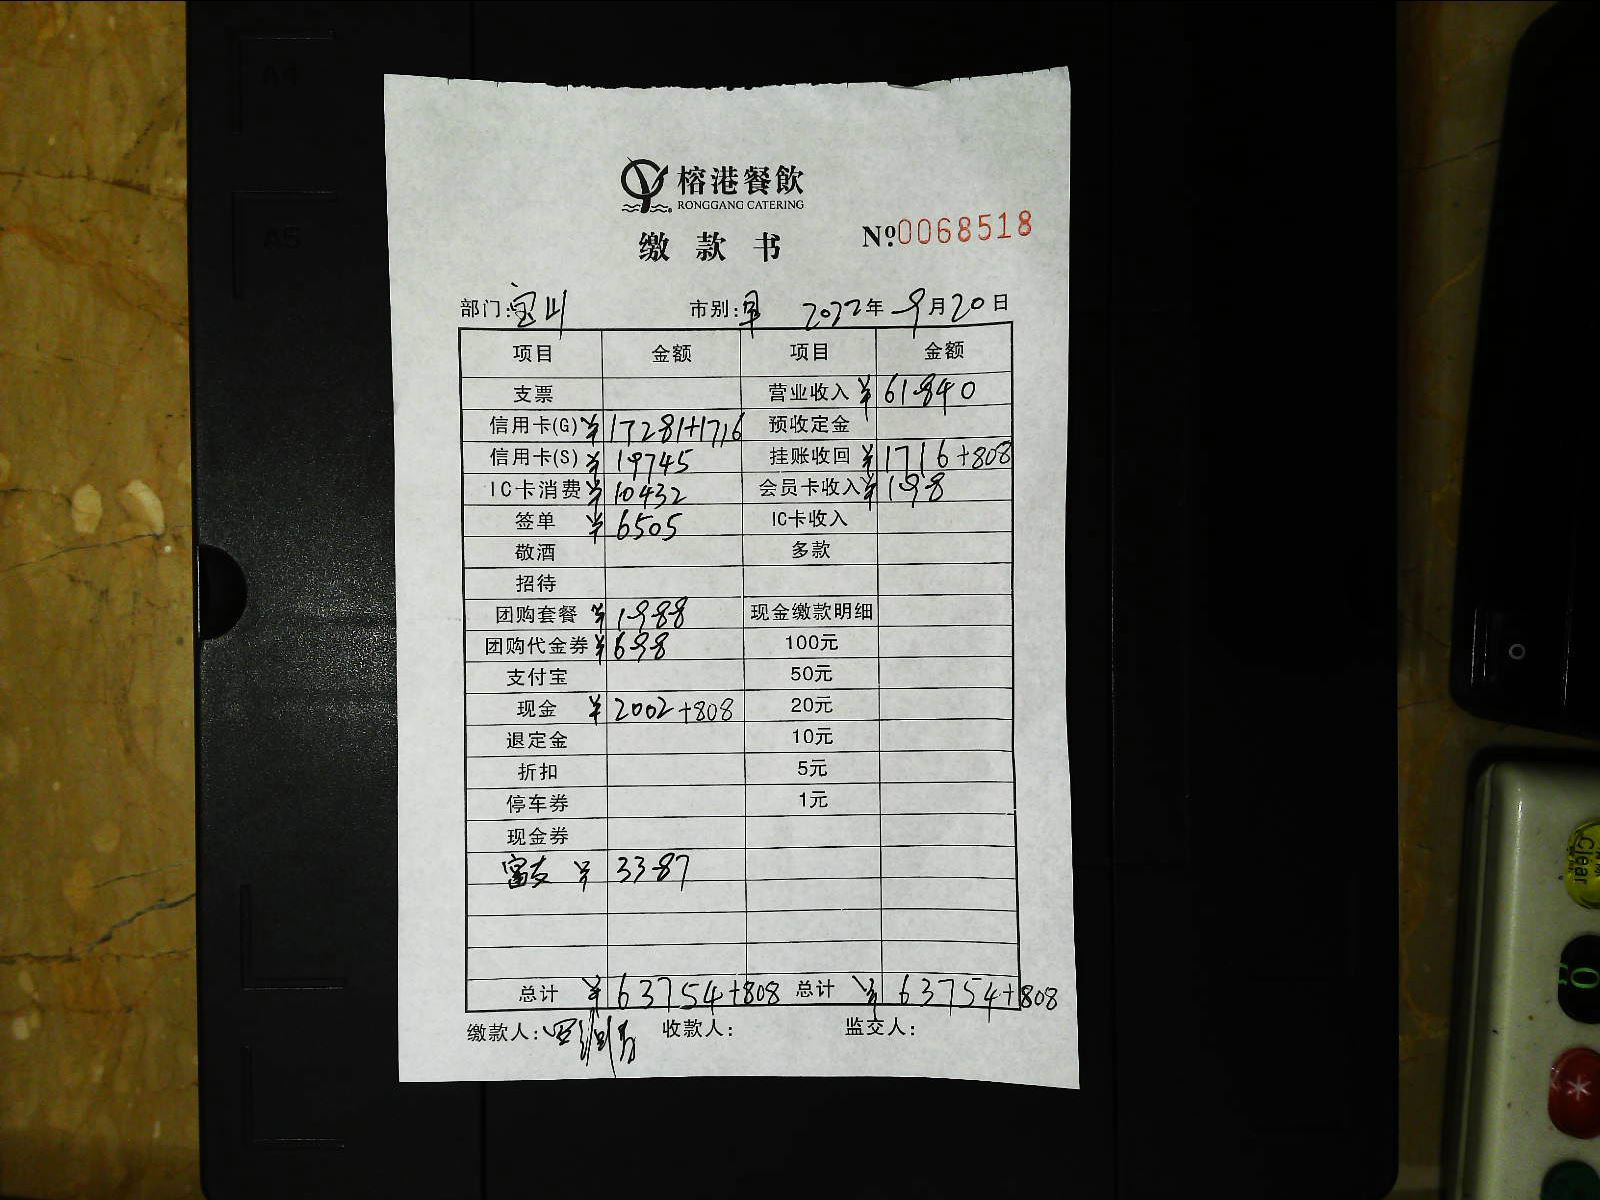 A4
A5
榕港餐飲
RONGGANG CATERING
缴款书 Nº0068518
部门:宝山 市别:早 2022年9月20日
项目 金额 项目 金额
支票 营业收入 ¥61840
信用卡(G) ¥17281+1716 预收定金
信用卡(S) ¥19745 挂账收回 ¥1716+808
IC卡消费 ¥10432 会员卡收入 ¥198
签单 ¥6505 IC卡收入
敬酒 多款
招待
团购套餐 ¥1988 现金缴款明细
团购代金券 ¥698 100元
支付宝 50元
现金 ¥2002+808 20元
退定金 10元
折扣 5元
停车券 1元
现金券
富友 ¥3387
总计 ¥63754+808 总计 ¥63754+808
缴款人: 收款人: 监交人:
Clear
0
*